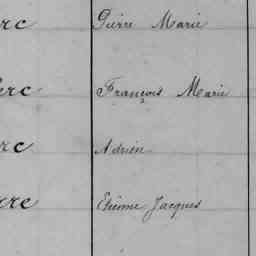 rc Pierre Marie
erc François Marie
rc Adrien
rre Etienne Jacques